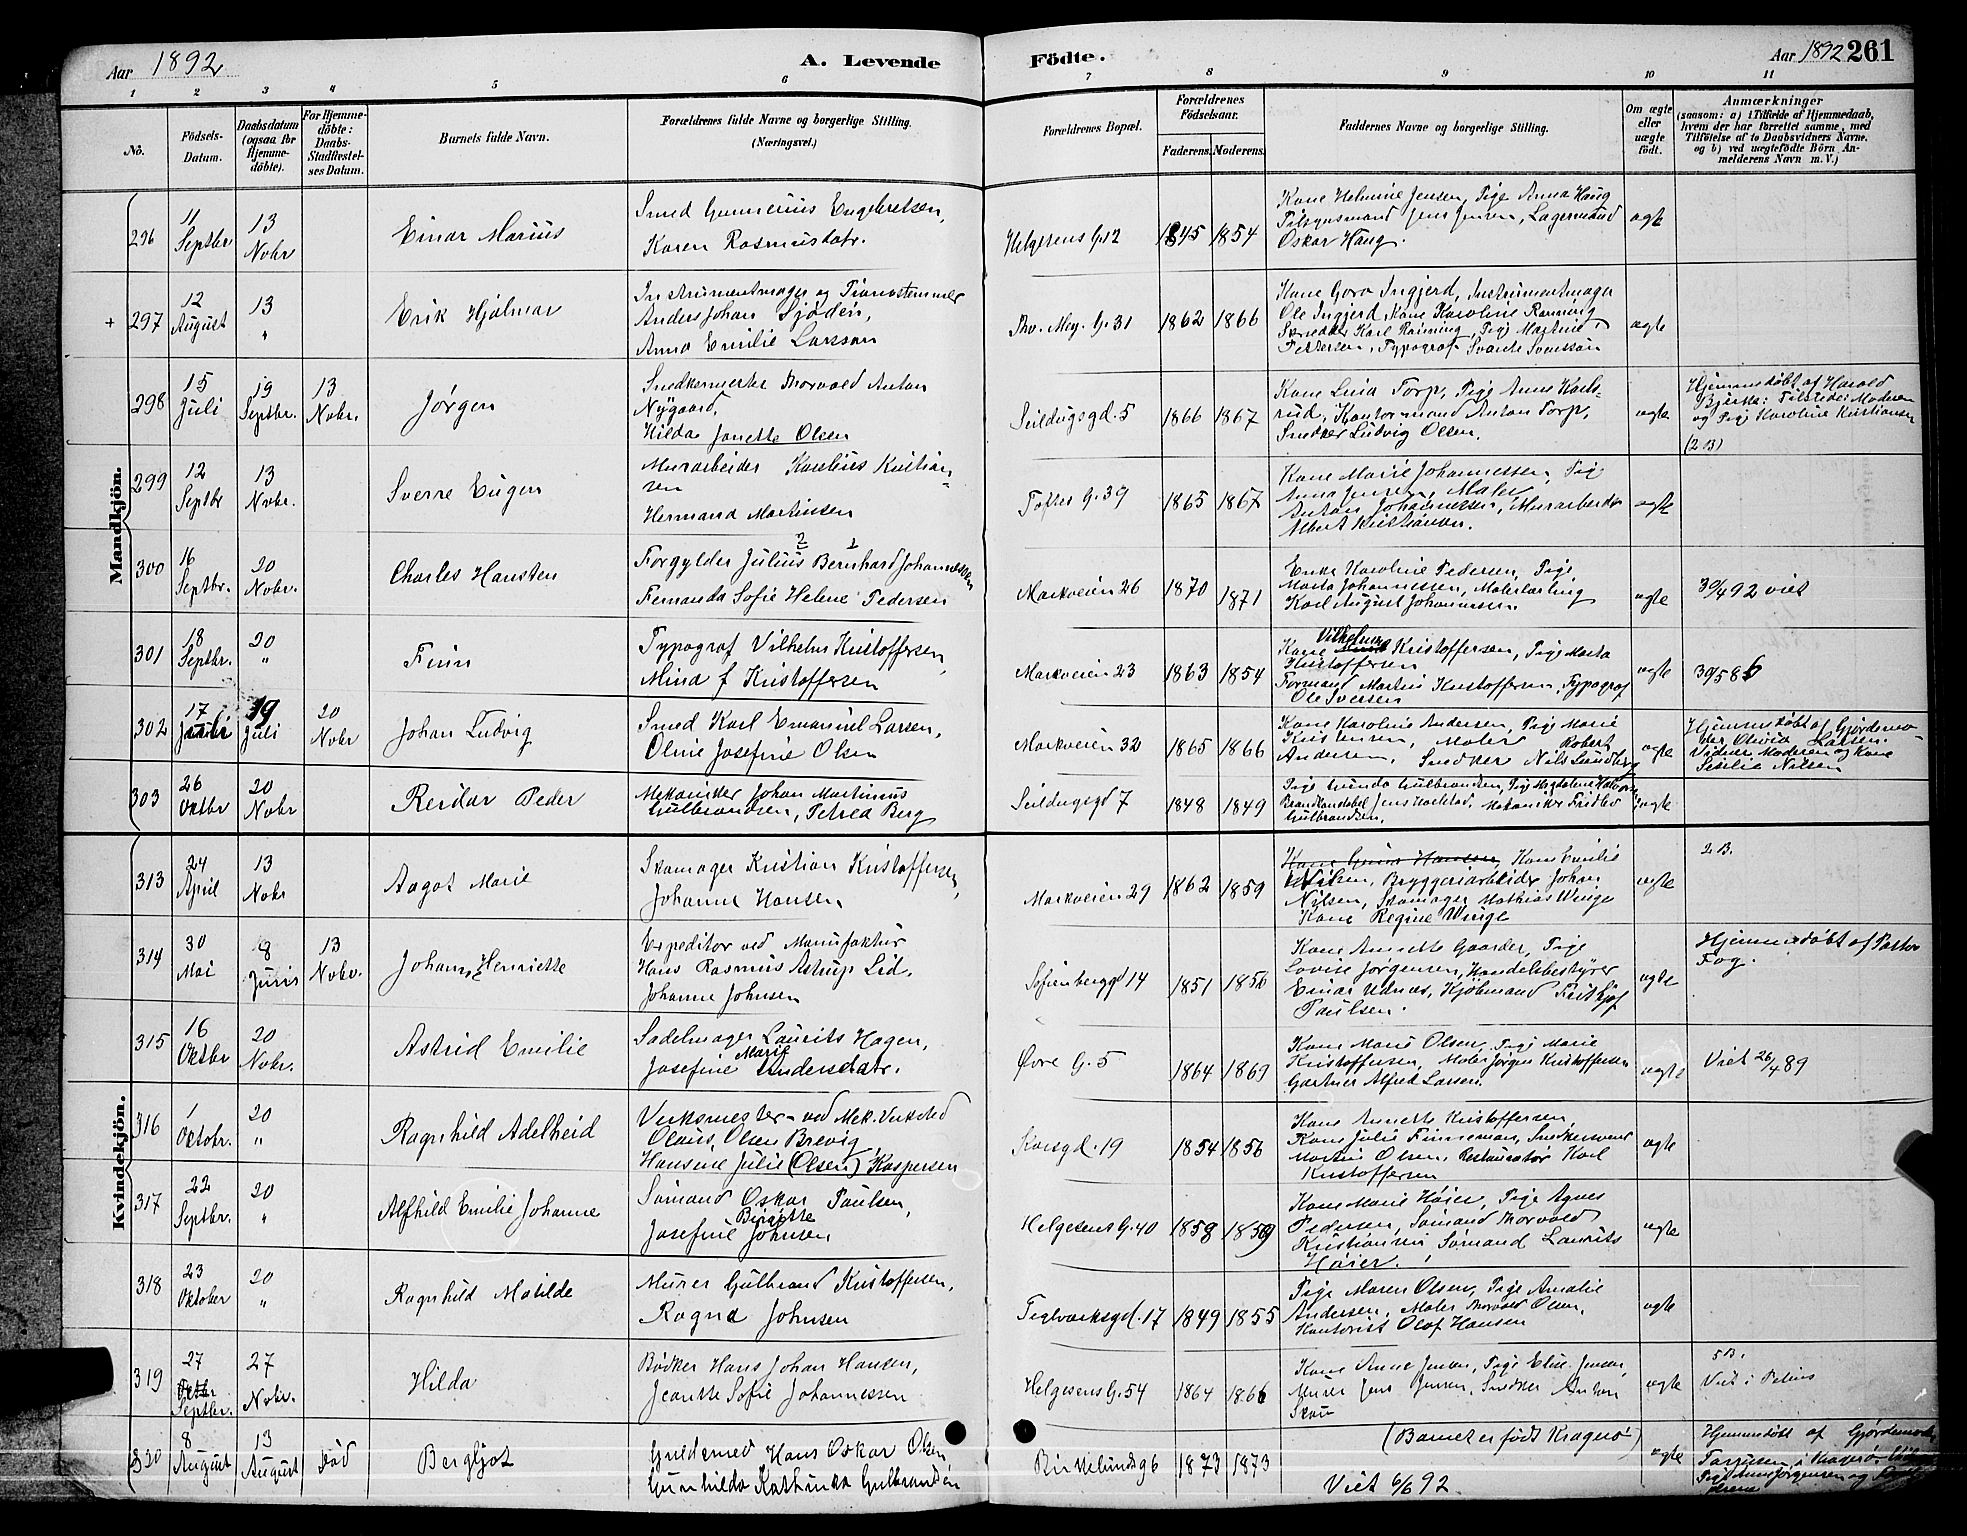 Aar 1892
A. Levende Födte.
Aar 1892 261
1 2 3 4 5 6 7 8 9 10 11
No.
Födsels-Datum.
Daabsdatum (ogsaa for Hjemmedöbte).
For Hjemmedöbte: Daabs-Stadfæstelses Datum.
Barnets fulde Navn.
Forældrenes fulde Navne og borgerlige Stilling. (Næringsvei.)
Forældrenes Bopæl.
Forældrenes Födselsaar.
Faderens. Moderens.
Faddernes Navne og borgerlige Stilling.
Om ægte eller uægte födt.
Anmærkninger
(saasom: a) i Tilfælde af Hjemmedaab,
hvem der har forrettet samme, med
Tilföielse af to Daabsvidners Navne.
og b) ved uægtefödte Börn An-
melderens Navn m. V.)
Mandkjön.
296
11 Septbr
13 Novbr
Einar Marius
Smed Gunnerius Engebretsen,
Karen Rasmusdatr.
Helgesens G. 12
1845 1854
Kone Helmine Jensen, Pige Anna Haug
Tilsynsmand Jens Jensen, Lagermand
Oskar Haug.
ægte
+ 297
12 August
13 "
Erik Hjalmar
Instrumentmager og Pianostemmer
Anders Johan Sjödén,
Anna Emilie Larsson
Thv. Mey. G. 31
1862 1866
Kone Gora Ingjerd, Instrumentmager
Ole Ingjerd, Kone Karoline Rønning
Snedker Karl Rønning, Pige Martine
Pettersen, Typograf Svante Svensson
ægte
298
15 Juli
19 Septbr.
13 Novbr.
Jørgen
Snedkermester Thorvald Anton
Nygaard,
Hilda Janette Olsen
Seildugsgd. 5
1866 1867
Kone Lina Torp, Pige Anne Karls-
rud, Kontormand Anton Torp,
Snedker Ludvig Olsen.
ægte
Hjemmedøbt af Harald
Bjerke; Tilstede: Moderen
og Pige Karoline Kristiansen
(2 B)
299
12 Septbr
13 Novbr.
Sverre Eugen
Murarbeider Karelius Kristian-
sen
Hermana Martinsen
Toftes G. 39
1865 1867
Kone Marie Johannessen, Pige
Anna Jensen, Maler
Anton Johannessen, Murarbeider
Albert Kristiansen.
ægte
300
16 Septbr.
20 Novbr.
Charles Hansten
Forgylder Julius Bernhard Johannessen
Fernanda Sofie Helene Pedersen
Markveien 26
1870 1871
Enke Karoline Pedersen, Pige
Marta Johannessen, Malerlærling
Karl August Johannessen
ægte
30/4 92 viet
301
18 Septbr.
20 "
Finn
Typograf Vilhelm Kristoffersen,
Mina f Kristoffersen
Markveien 23
1863 1854
Kone Vilhelmine Kristoffersen, Pige Marta
Kristoffersen
Formand Martin Kristoffersen, Typograf
Ole Iversen
ægte
30/5 86
302
17 Juli
19 Juli
20 Novbr
Johan Ludvig
Smed Karl Emanuel Larsen,
Oline Josefine Olsen
Markveien 32
1865 1866
Kone Karoline Andersen, Pige Marie
Kristensen, Maler Robert
Andersen, Snedker Nils Lundberg
ægte
Hjemmedøbt af Gjordemo-
der Olivia Larsen.
Vidner Moderen og Kone
Sesilie Nilsen
303
26 Oktbr
20 Novbr
Reidar Peder
Mekaniker Johan Martinius
Gulbrandsen, Petrea Berg
Seildugsgd 7
1848 1849
Brandkonstabel Jens Harestad, Mekaniker Fridtov
Gulbrandsen.
ægte
Kvindekjön.
313
24 April
13 Novbr
Aagot Marie
Skomager Kristian Kristoffersen,
Johanne Hansen
Markveien 29
1862 1859
Kone Emilie
Nilsen, Bryggeriarbeider Johan
Nilsen, Skomager Mathias Winge
Kone Regine Winge
ægte
2 B.
314
30 Mai
8 Juni
13 Novbr.
Johanne Henriette
Expeditør ved Manufaktur
Hans Rasmus Astrup Lid,
Johanne Johnsen
Sofienbergd 14
1851 1856
Kone Annette Gaarder, Pige
Lovise Jørgensen, Handelsbestyrer
Einar Udnæs, Kjøbmand Frithjof
Paulsen.
ægte
Hjemmedøbt af Pastor
Fog.
315
16 Oktbr
20 Novbr.
Astrid Emilie
Sadelmager Laurits Hagen,
Josefine Marie Andersdatr.
Øvre G. 5
1864 1869
Kone Marie Olsen, Pige Marie
Kristoffersen, Maler Jørgen Kristoffersen
Gartner Alfred Larsen.
ægte
Viet 26/4 89
316
1 Oktobr.
20 "
Ragnhild Adelheid
Verksmester ved Mek. Verksted
Olaus Olsen Brevig
Hansine Julie (Olsen) Kaspersen
Korsgd. 19
1854 1856
Kone Annette Kristoffersen
Kone Julie Finneman, Snedkersvend
Martin Olsen, Restauratør Karl
Kristoffersen
ægte
317
22 Septbr.
20 "
Alfhild Emilie Johanne
Sømand Oskar Paulsen,
Josefine Birgitte Johnsen
Helgesens G. 40
1858 1859
Kone Marie Høier, Pige Agnes
Pedersen, Sømand Thorvald
Kristiansen Sømand Laurits
Høier.
ægte
318
23 Oktober
20 "
Ragnhild Matilde
Murer Gulbrand Kristoffersen,
Ragna Johnsen
Teglverksgd. 17
1849 1855
Pige Maren Olsen, Pige Amalie
Andersen, Maler Thorvald Olsen,
Kontorist Olaf Hansen
ægte
319
27 Septbr.
27 Novbr.
Hilda
Bødker Hans Johan Hansen,
Jeanette Sofie Johannessen
Helgesens G. 54
1864 1866
Kone Anne Jensen, Pige Elise Jensen
Murer Jens Jensen, Snedker Anton
Skau
ægte
5 B.
Viet i Petrus
320
8 August
13 August
død
Bergljot
Guldsmed Hans Oskar Olsen
Gunhilda Katinka Gulbrandsen
Birkelundsg 6
1873 1873
(Barnet er født Kragerø)
Viet 6/6 92
ægte
Hjemmedøbt af Gjordemoder